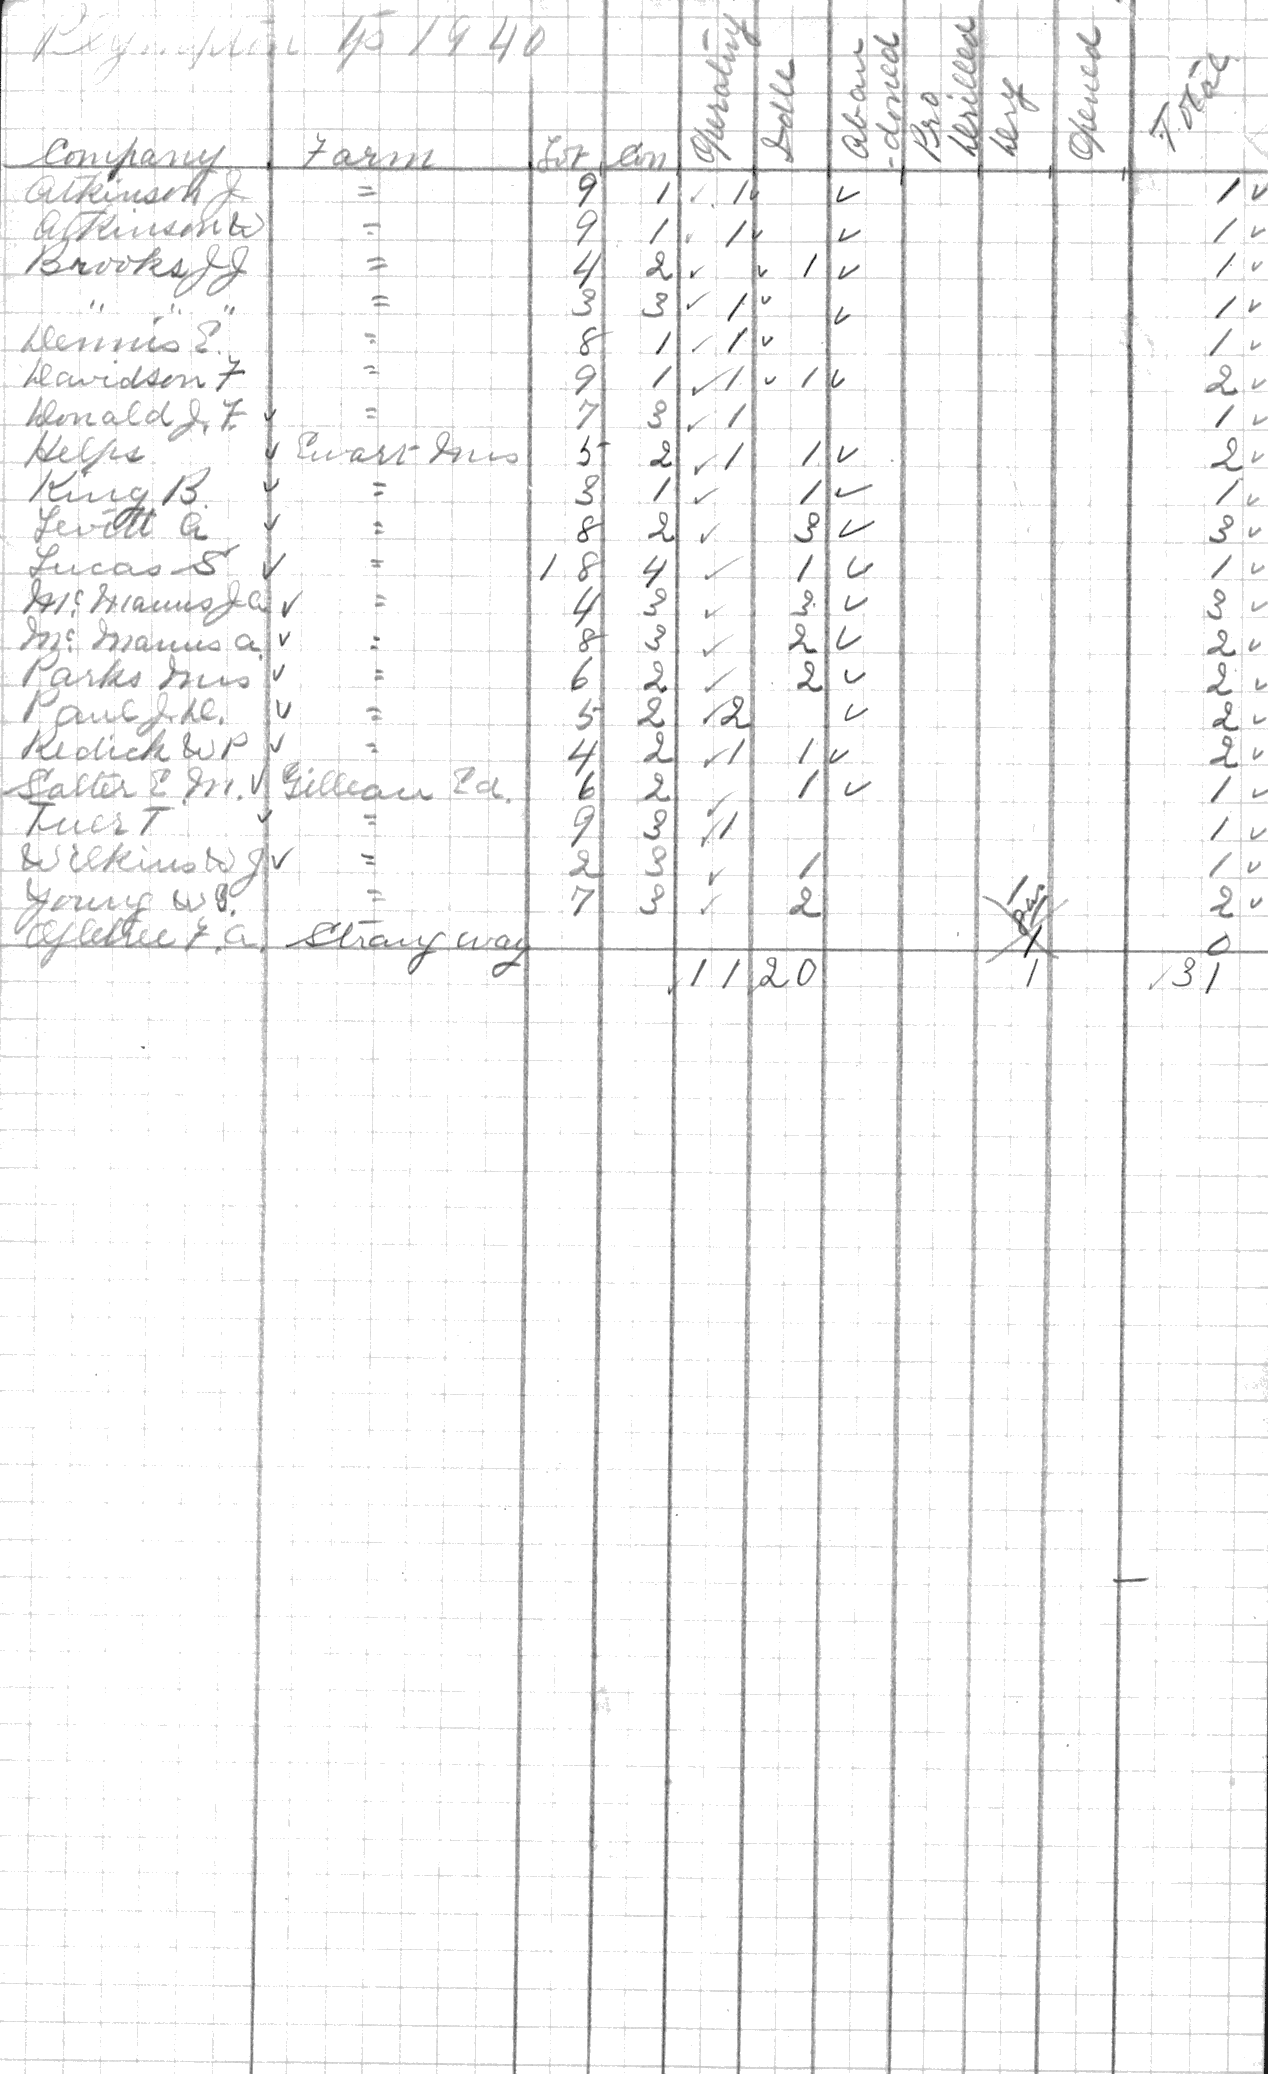 Plympton 1940
Company Farm Lot Con Operating Idle Aban-doned Pro Drilled Dry Opened Total
Atkinson J = 9 1 ✓ 1 ✓ ✓ 1 ✓
Atkinson W = 9 1 ✓ 1 ✓ ✓ 1 ✓
Brooks J J = 4 2 ✓ ✓ 1 ✓ 1 ✓
" " " = 3 3 ✓ 1 ✓ ✓ 1 ✓
Dennis E. = 8 1 ✓ 1 ✓ 1 ✓
Davidson F = 9 1 ✓ 1 ✓ 1 ✓ 2 ✓
Donald J. F. ✓ = 7 3 ✓ 1 1 ✓
Helps ✓ Ewart Mrs 5 2 ✓ 1 1 ✓ 2 ✓
King B. ✓ = 3 1 ✓ 1 ✓ 1 ✓
Levitt A ✓ = 8 2 ✓ 3 ✓ 3 ✓
Lucas S ✓ = 18 4 ✓ 1 ✓ 1 ✓
McManus J A ✓ = 4 3 ✓ 3 ✓ 3 ✓
McManus A. ✓ = 8 3 ✓ 2 ✓ 2 ✓
Parks Mrs ✓ = 6 2 ✓ 2 ✓ 2 ✓
Paul J. D. ✓ = 5 2 ✓ 2 ✓ 2 ✓
Redick W P ✓ = 4 2 ✓ 1 1 ✓ 2 ✓
Salter E. M. ✓ Gillean Ed. 6 2 ✓ 1 ✓ 1 ✓
T ✓ = 9 3 ✓ 1 1 ✓
Wilkins W J ✓ = 2 3 ✓ 1 1 ✓
Young W. = 7 3 ✓ 2 1 2 ✓
F. A. Strangway 1 0
✓ 11 20 1 ✓ 31